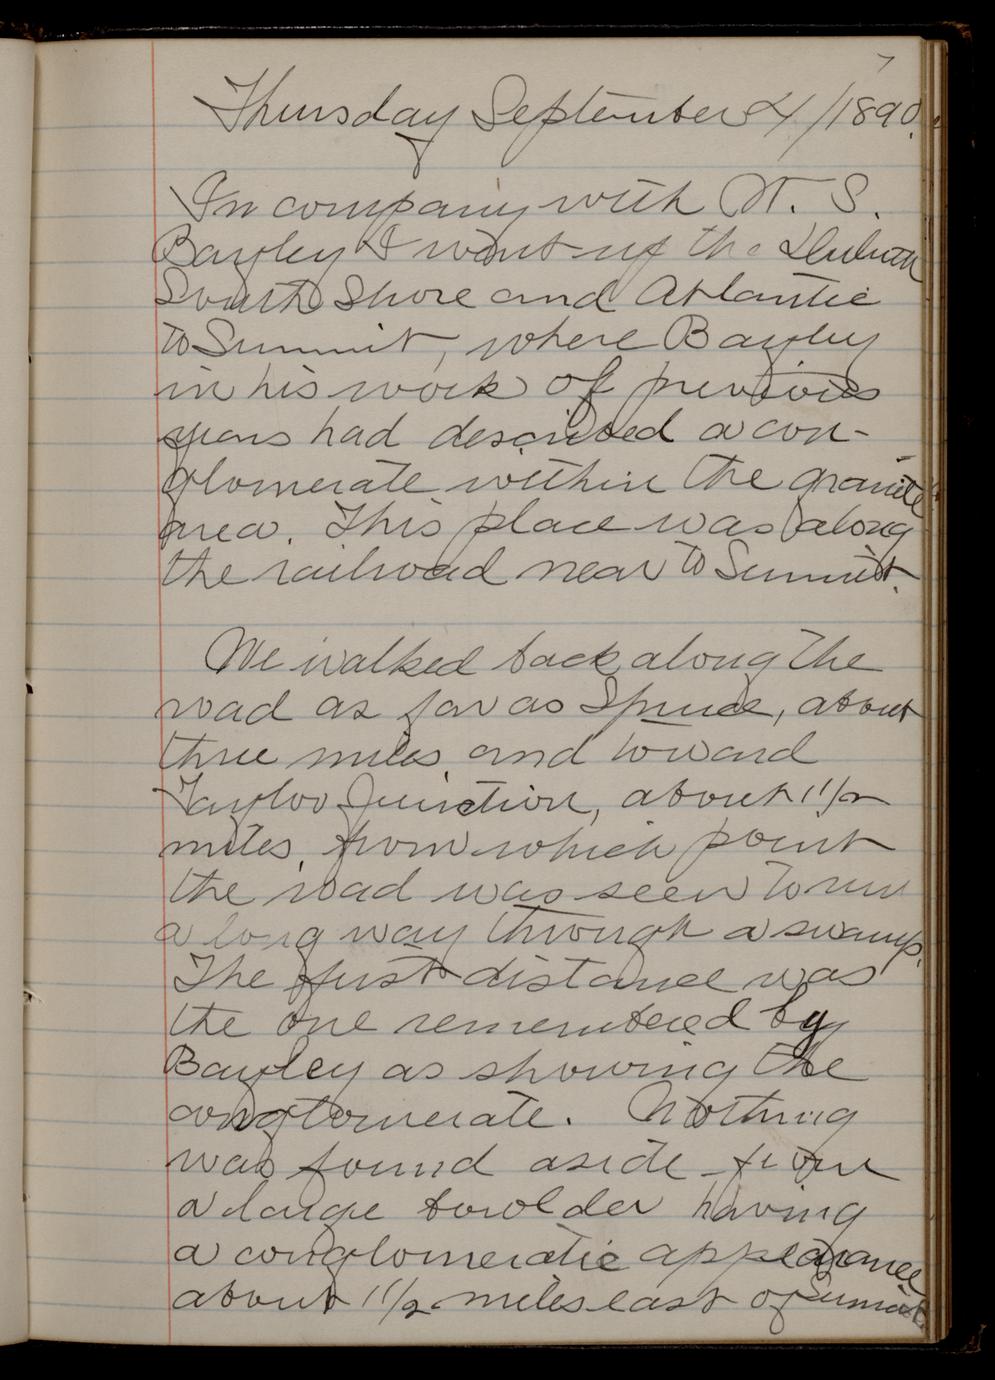 7
Thursday September 4/1890.
In company with W. S.
Bayley I went up the Duluth
South Shore and Atlantic
to Summit, where Bayley
in his work of previous
years had described a con-
glomerate within the granite
area. This place was along
the railroad near to Summit.
We walked back along the
road as far as Spruce, about
three miles, and toward
Taylor Junction, about 1 1/2
miles, from which point
the road was seen to run
a long way through a swamp.
The first distance was
the one remembered by
Bayley as showing the
conglomerate. Nothing
was found aside from
a large bowlder having
a conglomeratic appearance
about 1 1/2 miles east of Summit.